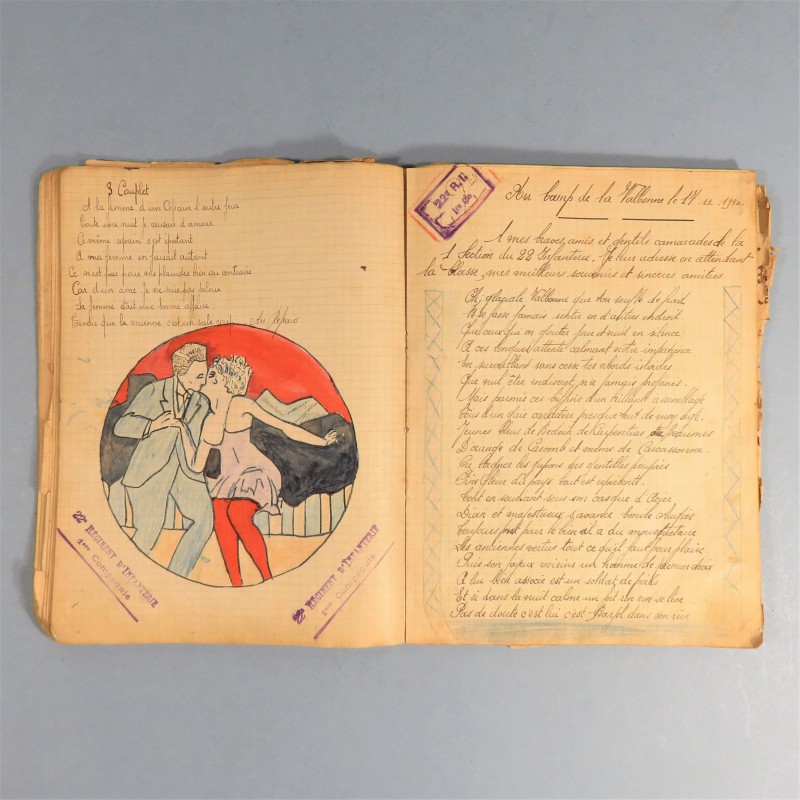 8 Couplet
A la femme d'un Copain l'autre jour
Toute une nuit je causais d'amour
Ce même copain c'est épatant
A ma femme en faisait autant
Ce n'est pas pour me plaindre bien au contraire
Car d'un ame Je ne suis pas jaloux
Sa femme était une bonne affaire
Tandis que la mienne c'est un sale coup Au Refrain
22e REGIMENT D'INFANTERIE
1ère Compagnie
22e REGIMENT D'INFANTERIE
1ère Compagnie
22e R.I.C
1re
Au Camp de la Valbonne le 17 11
A mes braves amis et gentils camarades de la
1 Section du 22 Infanterie. Je leur adresse en attendant
la Classe mes meilleurs souvenirs et sincères amitiés
Oh glaciale Valbonne que ton souffle de froid
Ne se fasse jamais sentir en d'autres endroit
Que ceux qui on goutter par et nuit en silence
A ces longues attente calmant notre impatience
En surveillant sans cesse tes abords interdis
Que nul être indiscret n'a jamais profanés.
Mais parmis ces buffles d'un brillant assemblage
Tous d'un gaie caractère presque tout de
Jeunes bleus de Bedoin de Carpentras
D'orange de Caromb et même de Carcassonne
les jupons des gentilles poupées
fleur du pays tout est
Tout en souriant sous son casque d'Acier
Divin et majestueux s'avance Emile
Toujours pret pour le bien il a du mousquetaire
Les anciennes vertus tout ce qu'il faut pour plaire
Puis son joyeux voisins un homme de premier choix
A lui bien associé est un soldat de poids
Et si dans la nuit calme un pet ron ron se lève
Pas de doute c'est lui c'est dans son rêve